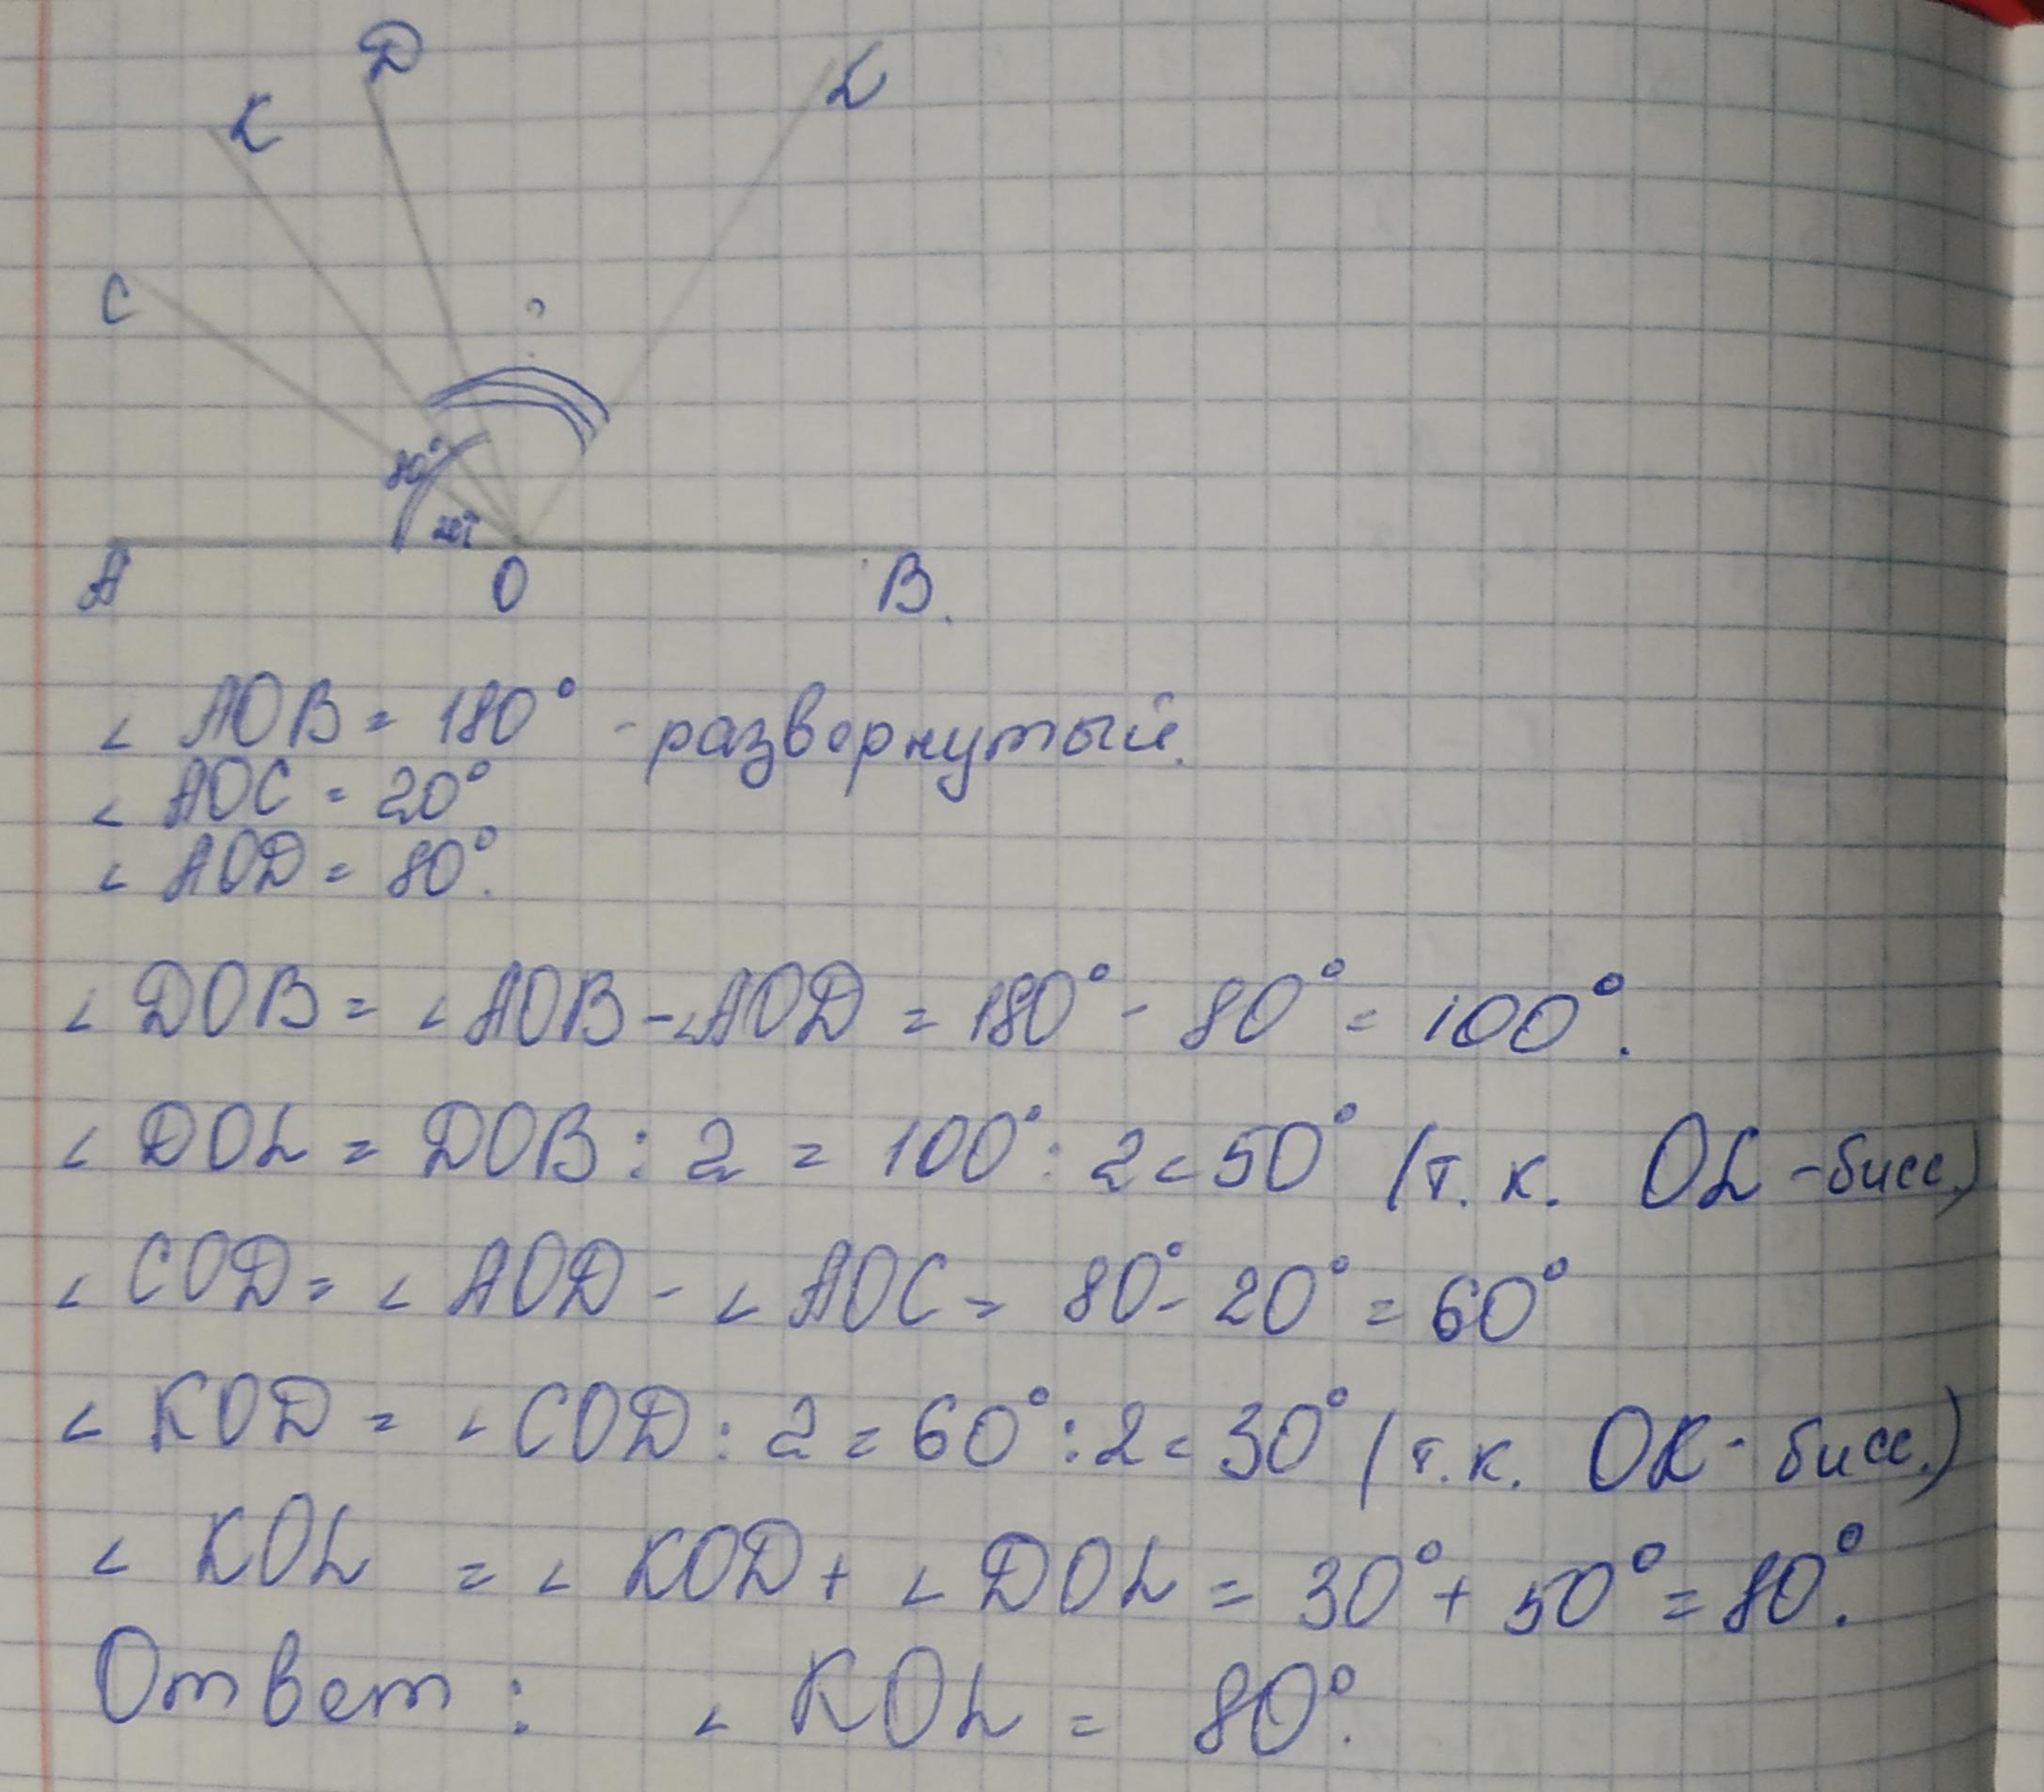 D
K
L
C
?
80°
20°
A
O
B.
∠ AOB = 180° - развернутый.
∠ AOC = 20°
∠ AOD = 80°.
∠ DOB = ∠ AOB - ∠AOD = 180° - 80° = 100°.
∠ DOL = DOB : 2 = 100° : 2 = 50° (т. к. OL - бисс.)
∠ COD = ∠ AOD - ∠ AOC = 80° - 20° = 60°
∠ KOD = ∠ COD : 2 = 60° : 2 = 30° (т.к. OK - бисс.)
∠ KOL = ∠ KOD + ∠ DOL = 30° + 50° = 80°.
Ответ : ∠ KOL = 80°.